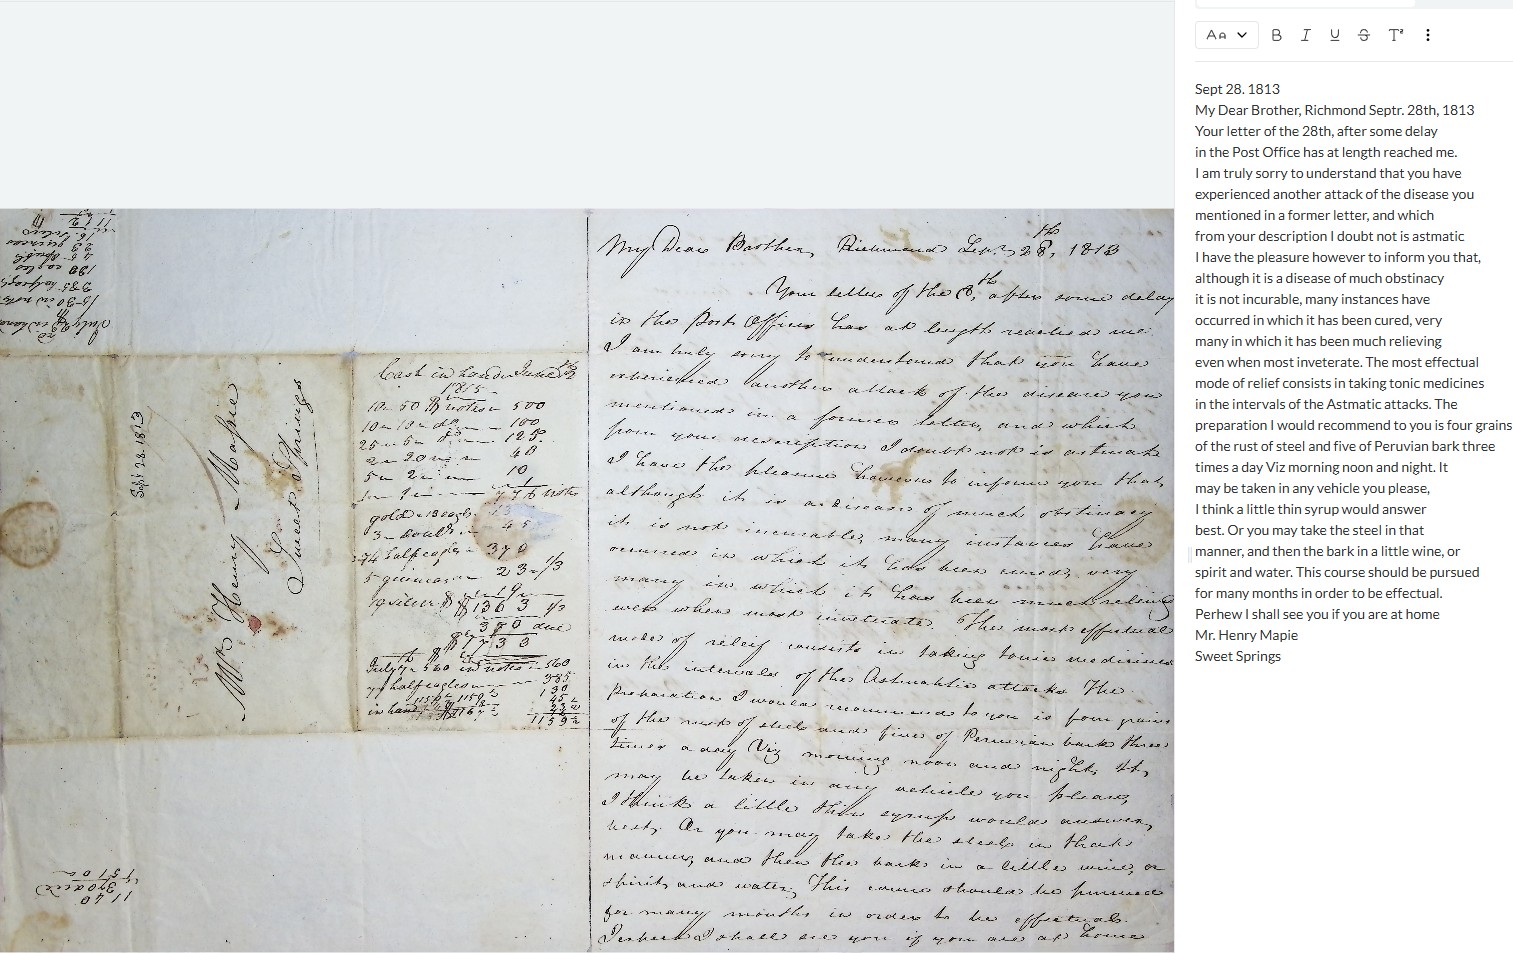 Sept 28. 1813
Mr. Henry Massie
Sweet Springs
Cash in hand June
1815
10 - 50 $ notes - 500
10 - 10 - do - 100
25 - 5 - do - 125
2 - 20 - 40
5 - 2 - 10
1 - 1 - 1
776 notes
gold - 13 eagls - 13
3 - doub. - 45
74 half eagles - 370
5 guineas - 23 - 1/3
in silver - 19
$1363 1/3
370 due
$1733
July - 560 in notes - 560
77 half eagles - 385
130
45
in hand
1159
1140
370 due
1510
My Dear Brother, Richmond Septr. 28th, 1813
Your letter of the 8th, after some delay
in the Post Office has at length reached me.
I am truly sorry to understand that you have
experienced another attack of the disease you
mentioned in a former letter, and which
from your description I doubt not is astmatic
I have the pleasure however to inform you that,
although it is a disease of much obstinacy
it is not incurable, many instances have
occurred in which it has been cured, very
many in which it has been much relieved
even when most inveterate. The most effectual
mode of releif consists in taking tonic medicines
in the intervals of the Astmatic attacks. The
preparation I would recommend to you is four grains
of the rust of steel and five of Peruvian bark three
times a day Viz morning noon and night. It
may be taken in any vehicle you please,
I think a little thin syrup would answer
best. Or you may take the steel in that
manner, and then the bark in a little wine, or
spirit and water. This course should be pursued
for many months in order to be effectual.
I shall see you if you are at home
Aa B I U S T
Sept 28. 1813
My Dear Brother, Richmond Septr. 28th, 1813
Your letter of the 28th, after some delay
in the Post Office has at length reached me.
I am truly sorry to understand that you have
experienced another attack of the disease you
mentioned in a former letter, and which
from your description I doubt not is astmatic
I have the pleasure however to inform you that,
although it is a disease of much obstinacy
it is not incurable, many instances have
occurred in which it has been cured, very
many in which it has been much relieving
even when most inveterate. The most effectual
mode of relief consists in taking tonic medicines
in the intervals of the Astmatic attacks. The
preparation I would recommend to you is four grains
of the rust of steel and five of Peruvian bark three
times a day Viz morning noon and night. It
may be taken in any vehicle you please,
I think a little thin syrup would answer
best. Or you may take the steel in that
manner, and then the bark in a little wine, or
spirit and water. This course should be pursued
for many months in order to be effectual.
Perhew I shall see you if you are at home
Mr. Henry Mapie
Sweet Springs